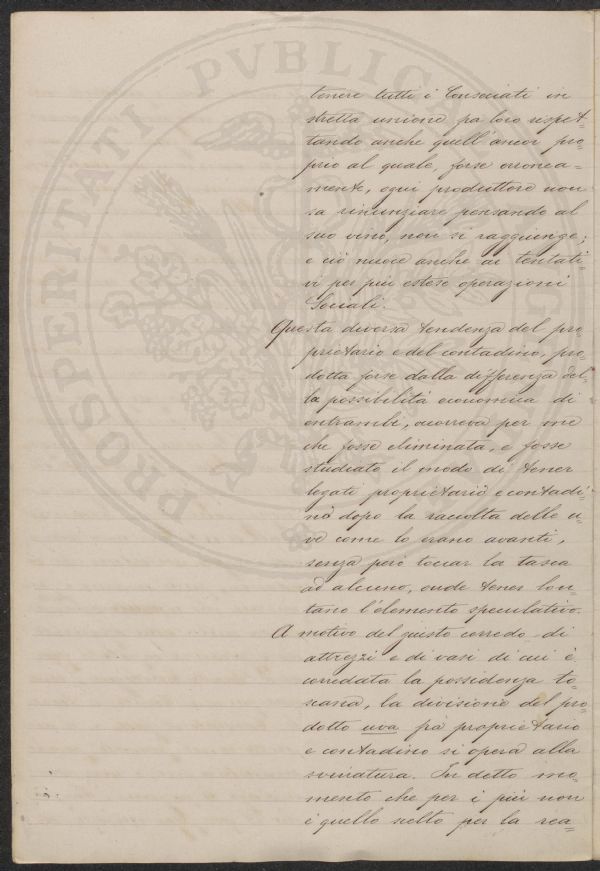 PROSPERITATI PVBLICAE
tenere tutti i Consociati in
stretta unione fra loro rispet-
tando anche quell'amor pro=
prio al quale, forse erronea=
mente, ogni produttore non
sa rinunziare pensando al
suo vino, non si raggiunge;
e ciò nuoce anche ai tentati=
vi per più estese operazioni
Sociali.
Questa diversa tendenza del pro=
prietario e del contadino, pro=
dotta forse dalla differenza del=
la possibilità economica di
entrambi, occorreva per me
che fosse eliminata, e fosse
studiato il modo di tener
legati proprietario e contadi=
no dopo la raccolta delle u=
ve come lo erano avanti,
senza però toccar la tasca
ad alcuno, onde tener lon=
tano l'elemento speculativo.
A motivo del giusto corredo di
attrezzi e di vasi di cui è
corredata la possidenza to=
scana, la divisione del pro=
dotto uva fra proprietario
e contadino si opera alla
svinatura. In detto mo=
mento che per i più non
è quello scelto per la rea=